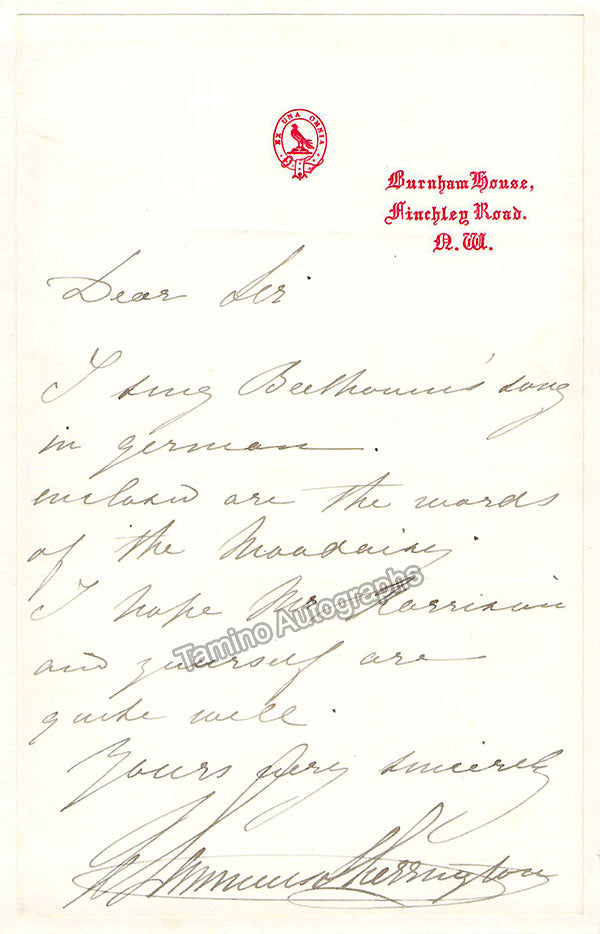 EX UNA OMNIA
Burnham House,
Finchley Road.
N.W.
Dear Sir
I sing Beethoven's song
in german.
enclosed are the words
of the
I hope Mr Harrison
and yourself are
quite well.
Yours very sincerely
Lemmens Sherrington
Tamino Autographs